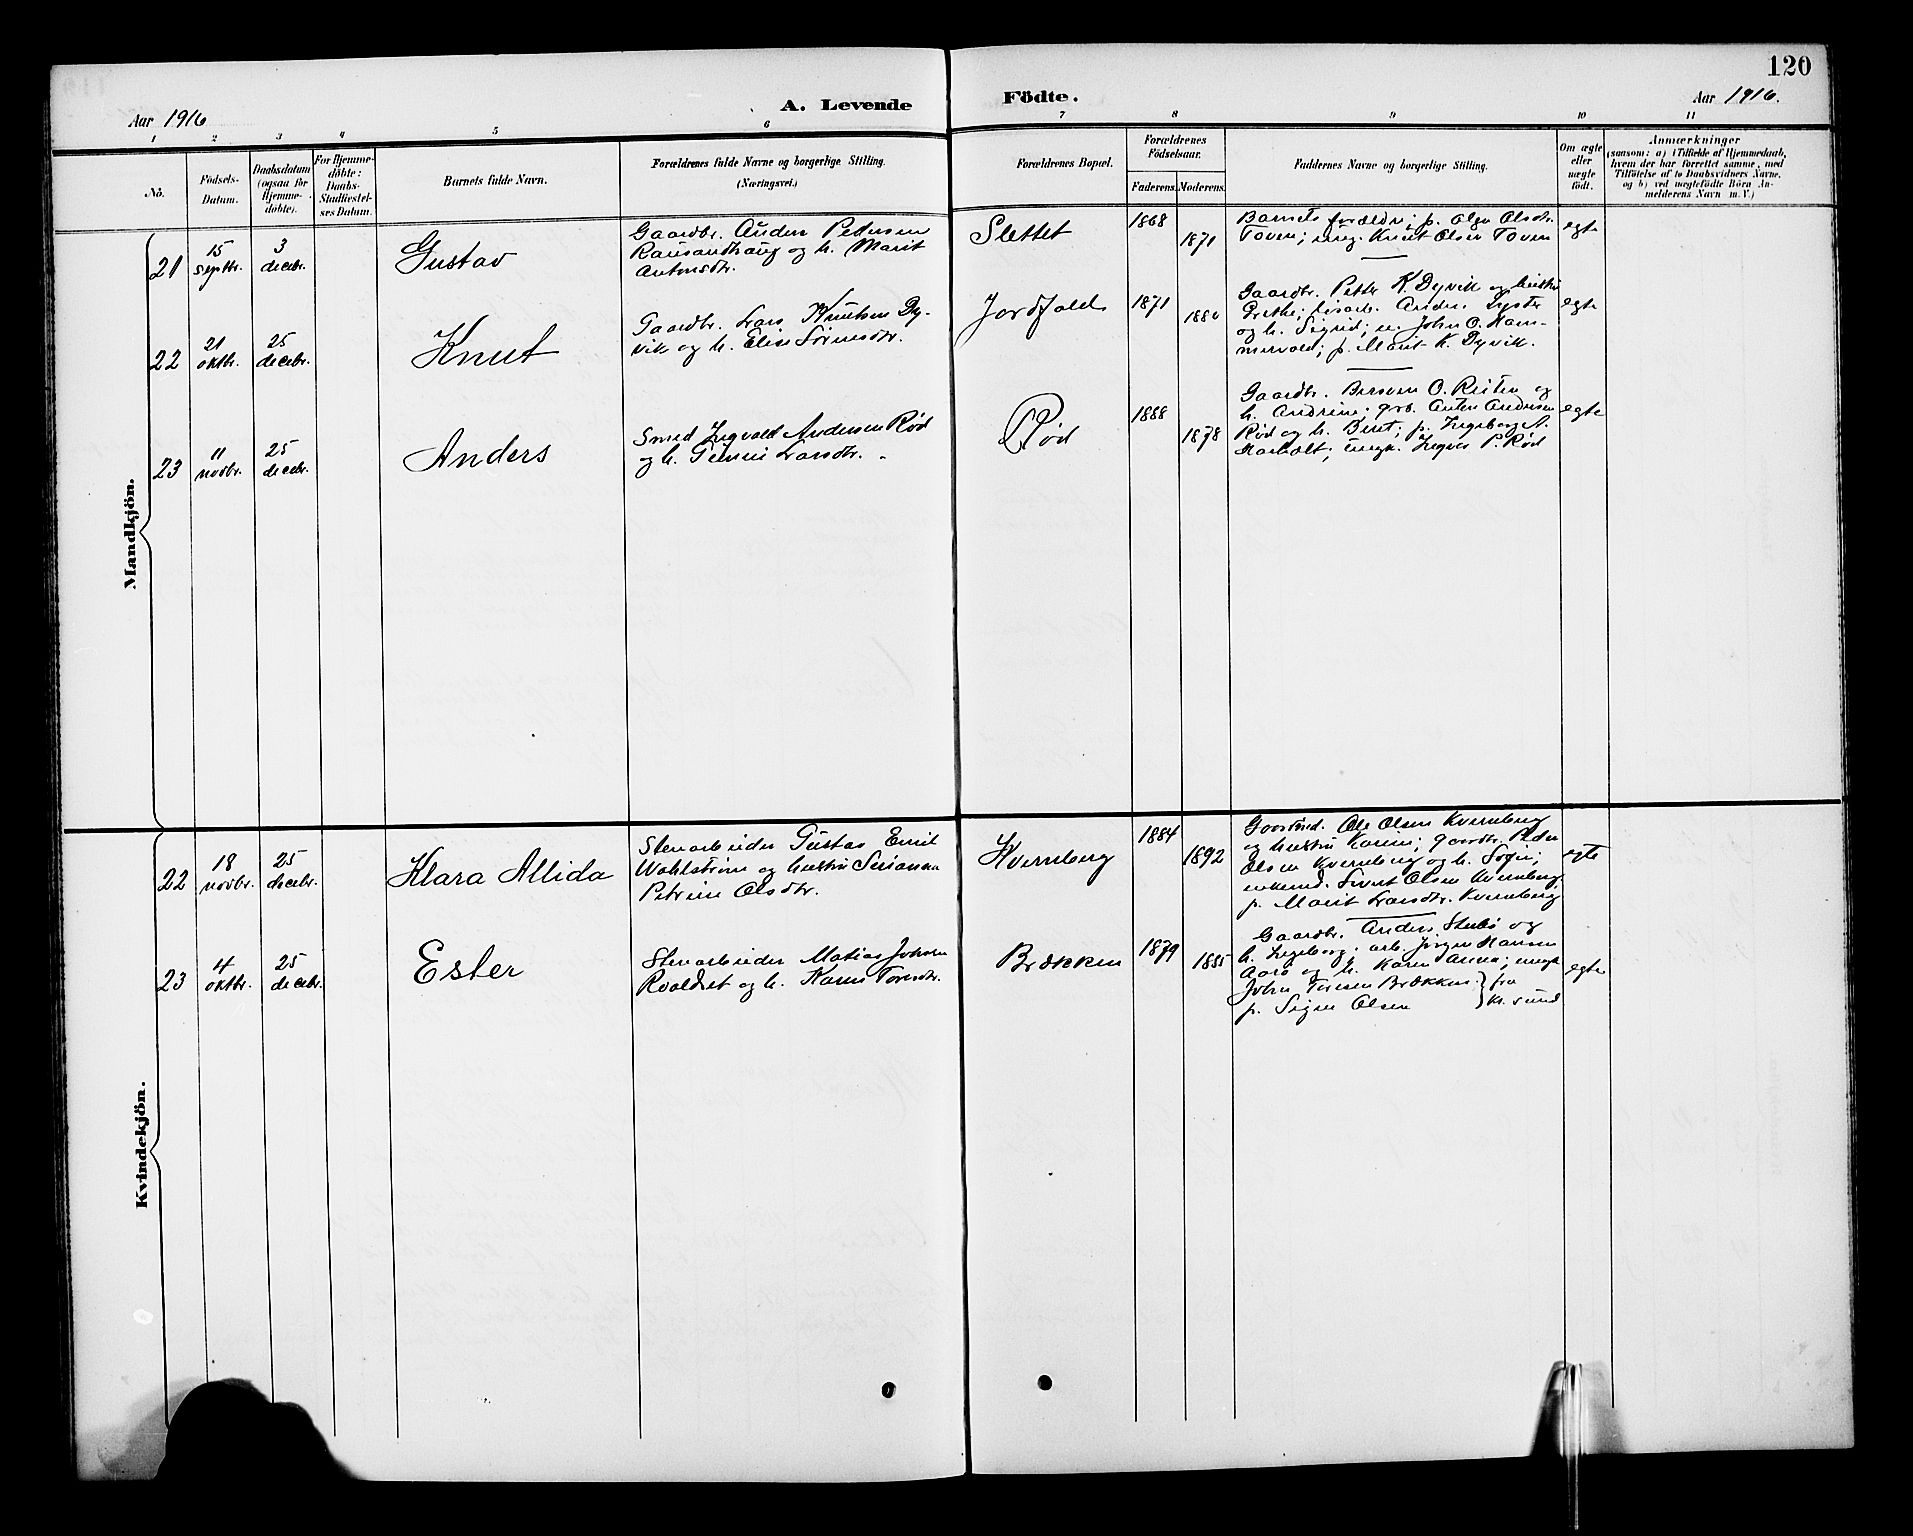 120
Aar 1916
A. Levende Födte.
Aar 1916.
1 2 3 4 5 6 7 8 9 10 11
No.
Födsels-
Datum.
Daabsdatum
(ogsaa for
Hjemme-
döbte).
For Hjemme-
döbte:
Daabs-
Stadfæstel-
ses Datum.
Barnets fulde Navn.
Forældrenes fulde Navne og borgerlige Stilling.
(Næringsvei.)
Forældrenes Bopæl.
Forældrenes
Födselsaar.
Faderens. Moderens.
Faddernes Navne og borgerlige Stilling.
Om ægte
eller
uægte
födt.
Anmærkninger
(saasom: a) i Tilfælde af Hjemmedaab,
hvem der har forrettet samme, med
Tilföielse af to Daabsvidners Navne,
og b) ved uægtefödte Börn An-
melderens Navn m. V.)
Mandkjön.
21
15
septbr.
3
decbr.
Gustav
Gaardbr. Anders Pedersen
Rausandhaug og h. Marit
Antonsdtr.
Slettet
1868
1871
Barnets forældre; p. Olga Olsdtr.
Toven; ung. Knut Olsen Toven
egte
22
21
oktbr.
25
decebr.
Knut
Gaardbr. Lars Knutsen Dy-
vik og h. Elise Sörensdtr.
Jordfald
1871
Gaardbr. Petter K. Dyvik og hustru
Grethe; Anders
og h. Sigrid; John O. Ham-
mervold; p. Marit K. Dyvik.
egte
23
11
novbr.
25
decebr.
Anders
Smed Ingvald Andersen Rød
og h. Larsdtr.
Rød
1888
1878
Gaardbr. Bersven O. Reiten og
h. Andrine; grb. Anten Andersen
Rød og h. Beret; p. Ingeborg A.
ungk. Ingvar P. Rød
egte
Kvindekjön.
22
18
novbr.
25
decebr.
Klara Allida
Stenarbeider Gustav Emil
Wahlström og hustru
Petrine Olsdtr.
Kvernberg
1884
1892
Ole Olsen Kvernberg
og hustru Karen; gaardbr. Peder
Olsen Kvernberg og h.
enkemd. Sivert Olsen Kvernberg
p. Marit Larsdtr. Kvernberg
egte
23
4
oktbr.
25
decebr.
Ester
Stenarbeider Matias Johnsen
Roaldset og h. Karen
Brækken
1879
1885
Gaardbr. Anders Stubö og
h. Ingeborg; arb. Jörgen Hansen
Aarö og h. Karen Anna; ungk
John Toresen Brækken fra
p. Signe Olsen kr. sund
egte